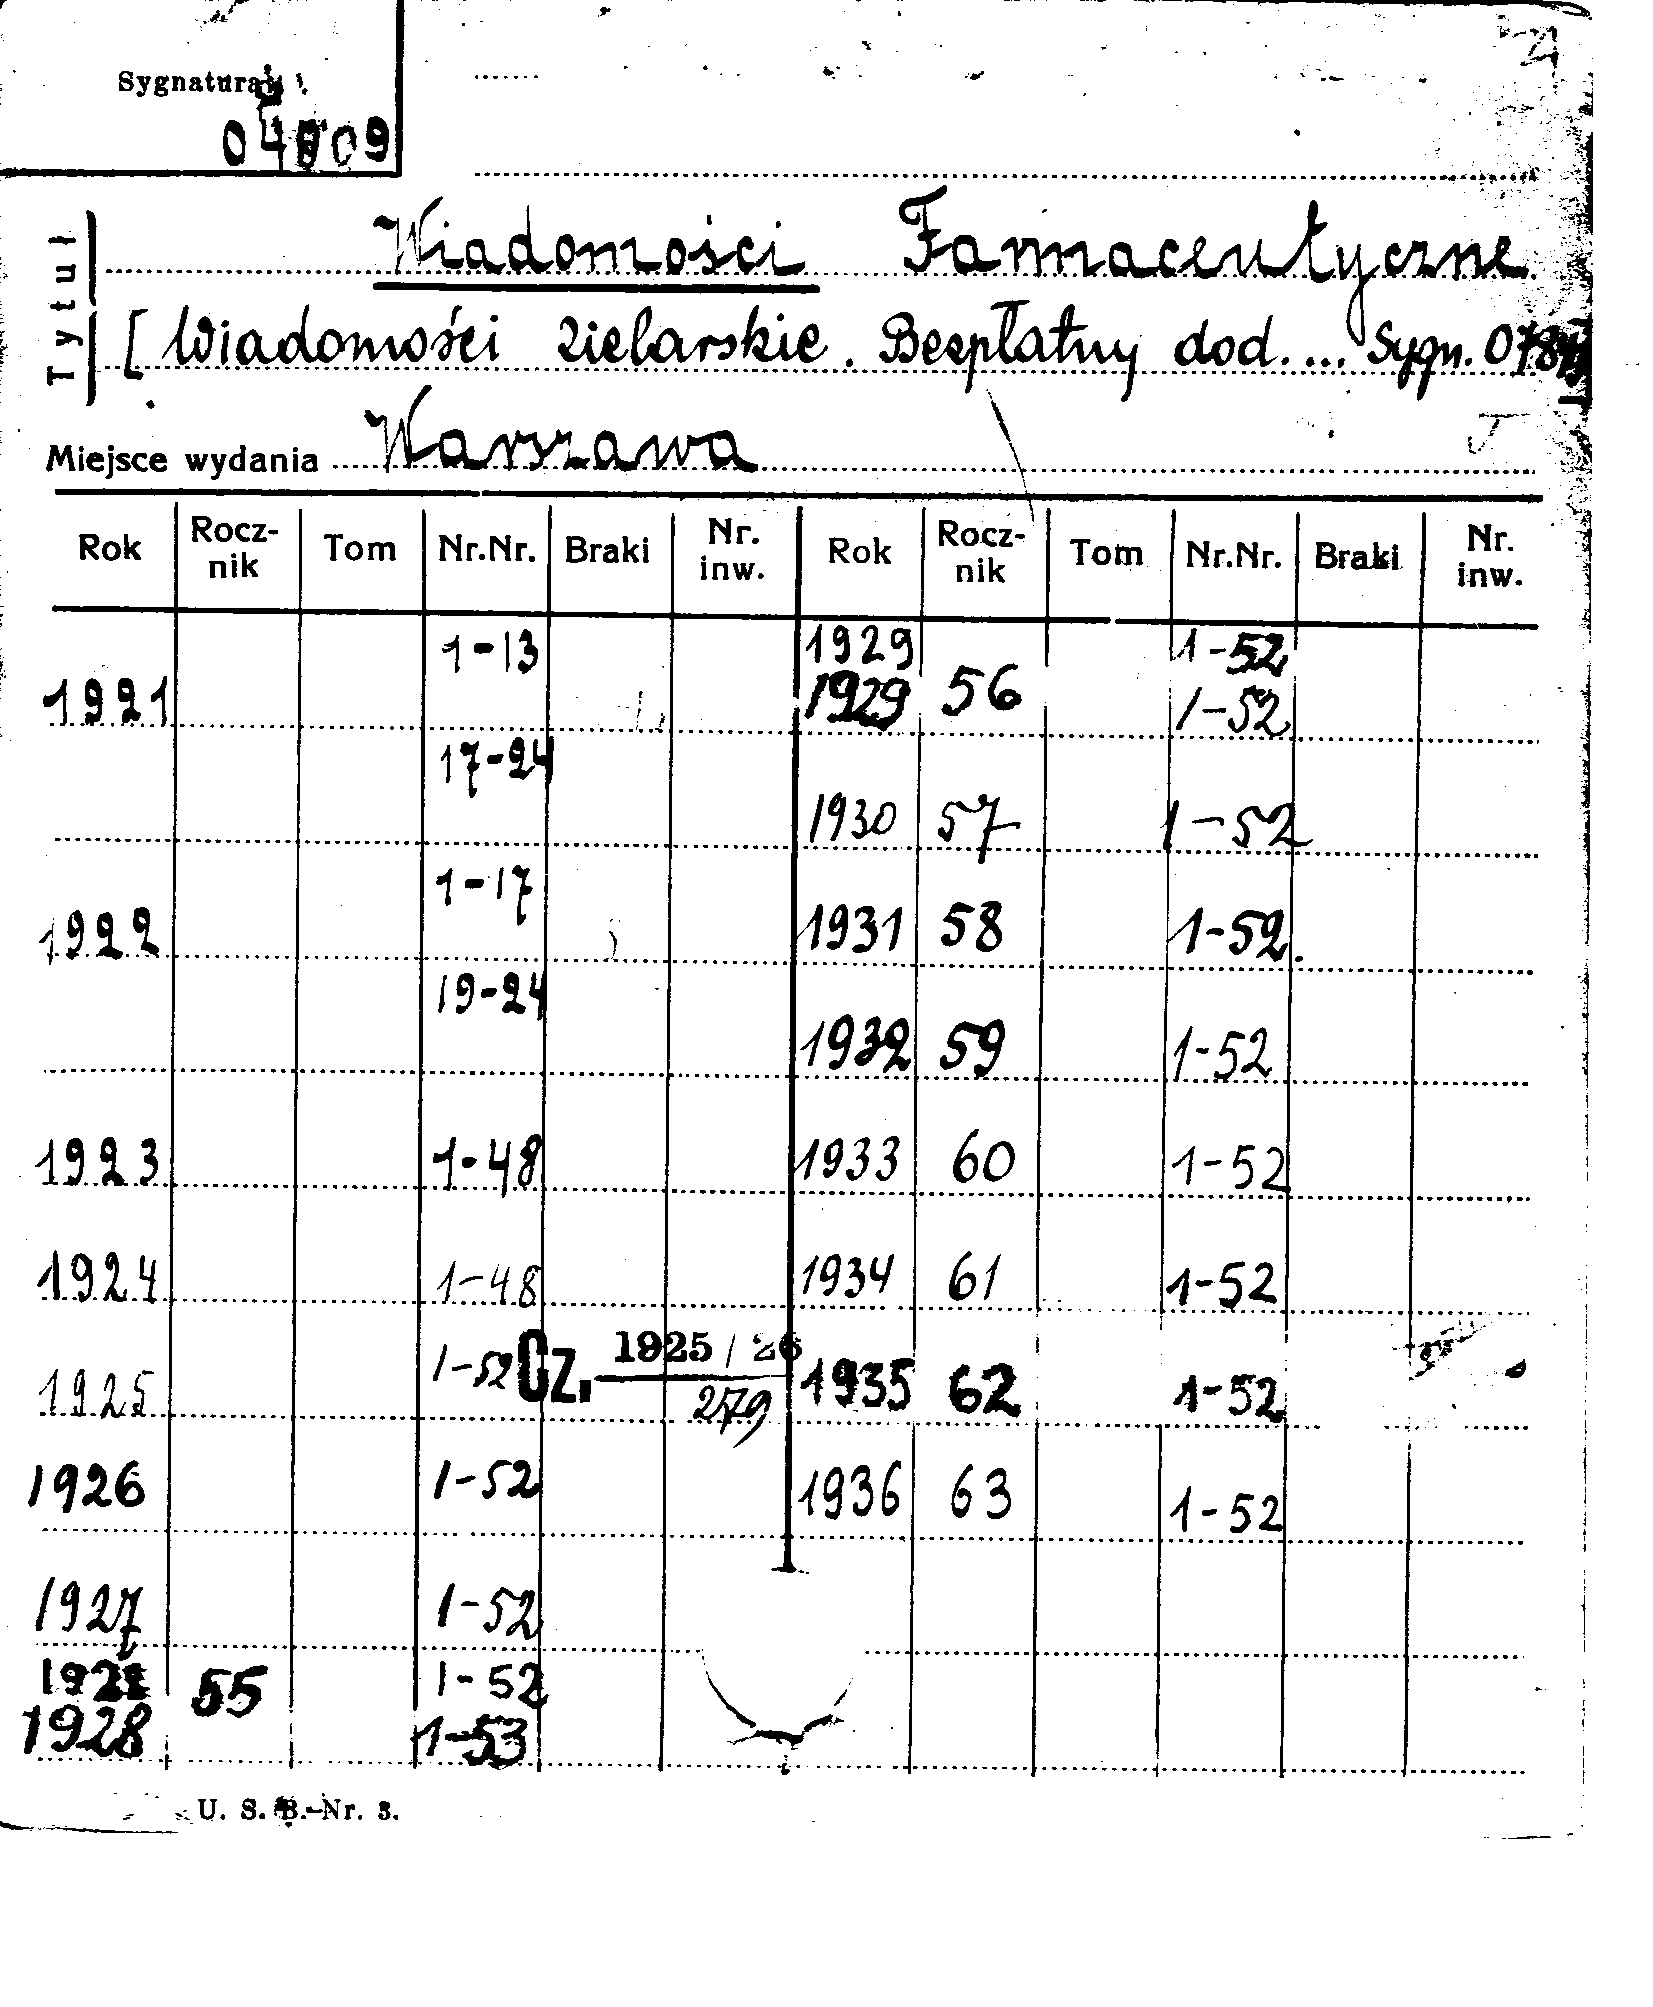 Sygnatura
Tytuł
Wiadomości Farmaceutyczne
[ Wiadomości zielarskie. Bezpłatny dod. ... Sygn.
Miejsce wydania Warszawa
Rok Rocz-nik Tom Nr.Nr. Braki Nr. inw. Rok Rocz-nik Tom Nr.Nr. Braki Nr. inw.
1-13 1929 1-52
1921 1929 56 1-52
17-24
1930 57 1-52
1-17
1922 1931 58 1-52.
19-24
1932 59 1-52
1923 1-48 1933 60 1-52
1924 1-48 1934 61 1-52
1925 1-52 Cz. 1925 / 26 1935 62 1-52
2579
1926 1-52 1936 63 1-52
1927 1-52
55 1-52
1928 1-53
U. S. B.-Nr. 3.